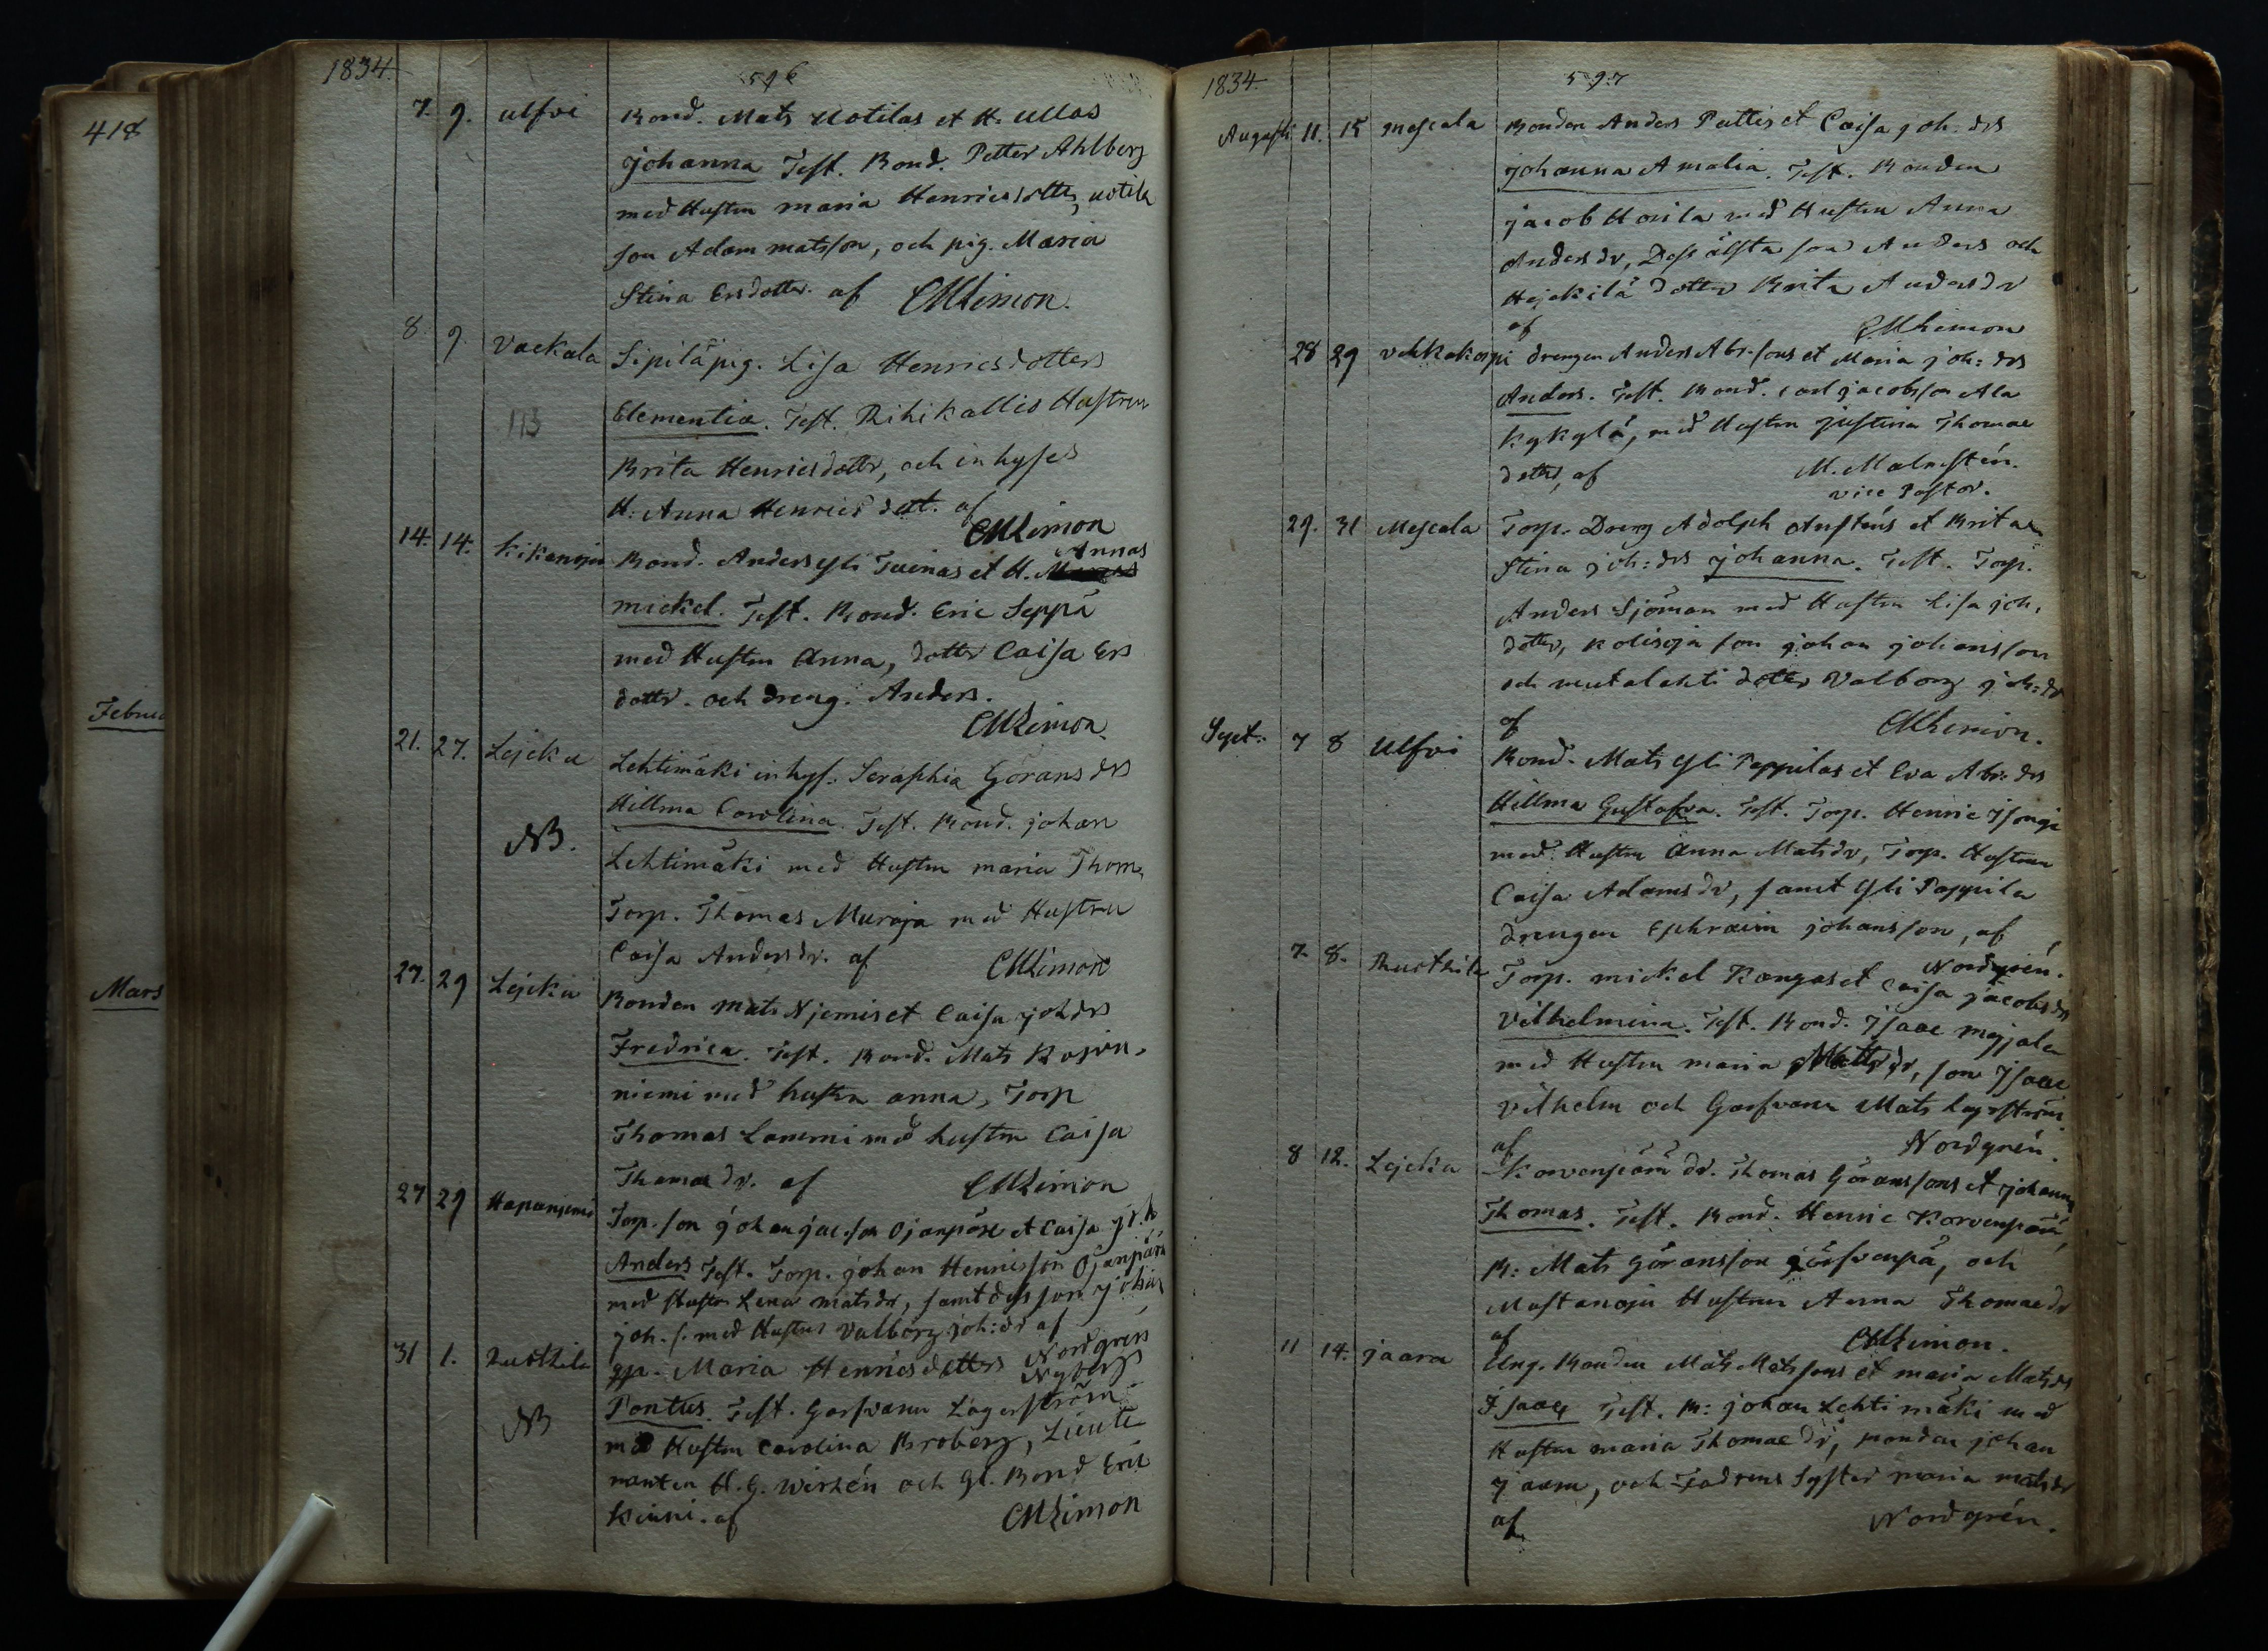 418
Febru
Mars
1834.
596
7. 9. Ulfvi Bond. Mats Uotilas et H. Ullas
Johanna Test. Bond. Petter Ahlberg
med Hustru Maria Henricsdotter, Uotila
son Adam Matsson, och pig. Maria
Stina Ersdotter. af CMLimon.
8 9. Vackala Sipilä pig. Lisa Henricsdotters
113
Clementia. Test. Rihikallio Hustrun
Brita Henricsdottr, och inhyses
H: Anna Henrics dott. af
CMLimon
14. 14. Kikanoja Bond. Anders Yli Tuinas et H. Annas
Mickel. Test. Bond. Eric Seppä
med Hustru Anna, dotter Caisa Ers
dottr. och dreng. Anders.
CMLimon.
21. 27. Lejcku Lehtimäki inhys. Seraphia Görans drs
Hillma Carolina. Test. Bond. Johan
NB. Lehtimäki med Hustru Maria Thom.
Torp. Thomas Muroja med Hustru
Caisa Andersdr. af CMLimon
27. 29 Lejcku Bonden Mats Njemis et Caisa Joh drs
Fredrica. Test. Bond. Mats
niemi med hustru Anna, Torp
Thomas Lammi med hustru Caisa
Thomae dr. af CMLimon
27 29 Hapanjemi Torp. son Johan Jac.son Ojanpäse et Caisa
Anders Test. Torp. Johan Henricsson Ojanpää
med Hustru Lena Matsdr, samt dess son Johan
Joh. s. med Hustru Valborg Joh: dr af
Nordgren
31 1. Rusthila gp. Maria Henricsdotters Nybergs
Pontus. Test. Garfvaren Lagerström
NB med Hustru Carolina Broberg, Lieute
nanten H. G. Wirzén och Gl. Bond Eric
Kinni. af CMLimon
1834.
597
Augusti 11. 15 Mescala Bonden Anders Pattis et Caisa Joh: drs
Johanna Amalia. Test. Bonden
Jacob Horila med Hustru Anna
Andersdr, Dess älsta son Anders och
Hejckilä dotter Brita Andersdr
af CMLimon
28 29 Vehkakorpi drengen Anders Abr. sons et Maria Joh: drs
Anders. Test. Bond. Carl Jacobsson Ala
Kykylä, med Hustru Justina Thomae
dotter, af M. Malmstén.
vice Pastor.
29. 31 Mescala Torp. Dreng Adolph Austéns et Brita
Stina Joh: drs Johanna. Test. Torp.
Anders Sjöman med Hustru Lisa Joh.
dotter, Kolisoja son Johan Johansson
och Mutalahti dotter Valborg Joh: dr
af CMLimon.
Sept. 7 8 Ulfvi Bond. Mats Yli Pappilas et Eva Abr: drs
Hillma Gustafva. Test. Torp. Henric Isoniji
med Hustru Anna Matsdr, Torp. Hustrun
Caisa Adamsdr, samt Yli Pappila
drengen Ephraim Johansson, af
Nordgrén.
7. 8. Rusthila Torp. Mickel Kangas et Caisa Jacobsdrs
Vilhelmina. Test. Bond. Isaac Majjala
med Hustru Maria Mattsdr, son Isaac
Vilhelm och Garfvaren Mats Lagerström.
af Nordgrén.
8 12. Lejcku Korvenpää dr. Thomas Göranssons et Johanna
Thomas. Test. Bond. Henric Korvenpää,
B: Mats Göransson Järfvenpä, och
Mustanoja Hustrun Anna Thomaedr
af CMLimon.
11 14. Jaara Ung. Bonden Mats Matssons et Maria Matsdrs
Isaac Test. B: Johan Lehtimäki med
Hustru Maria Thomae dr, Bonden Johan
Jaara, och Fadrens Syster Maria Matsdr
af Nordgrén.